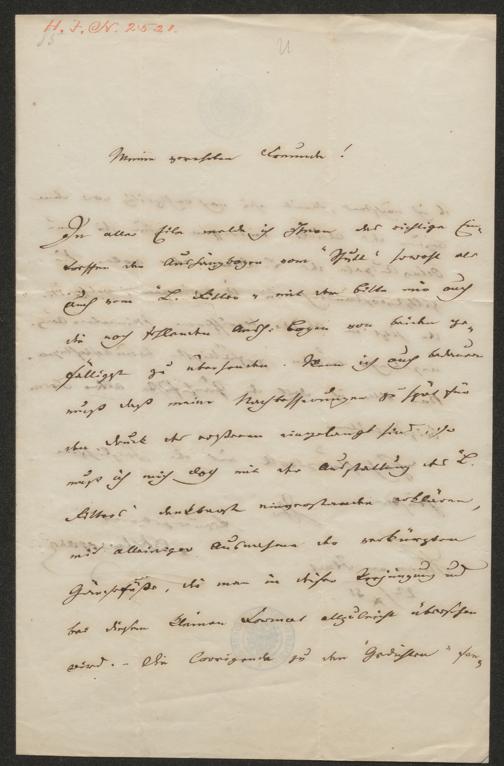 H. I. N. 2521.
Meine verehrten Freunde!
In aller Eile melde ich Ihnen das richtige Ein-
treffen der Aushängbogen vom "Schutt" sowohl als
auch vom "L. Ritter" mit der Bitte mir auch
die noch fehlenden Aush: bogen von beiden ge-
fälligst zu übersenden. Wenn ich auch bedauern
muß daß meine Nachbesserungen zu spät für
den Druck des ersteren eingelangt sind, so
muß ich mich doch mit der Ausstattung des "L.
Ritters" dankbarst einverstanden erklären,
mit alleiniger Ausnahme der verkürzten
die man in dieser Verjüngung und
bei diesem kleinen Format allzuleicht übersehen
wird. – Die Corrigenda zu den "Gedichten"